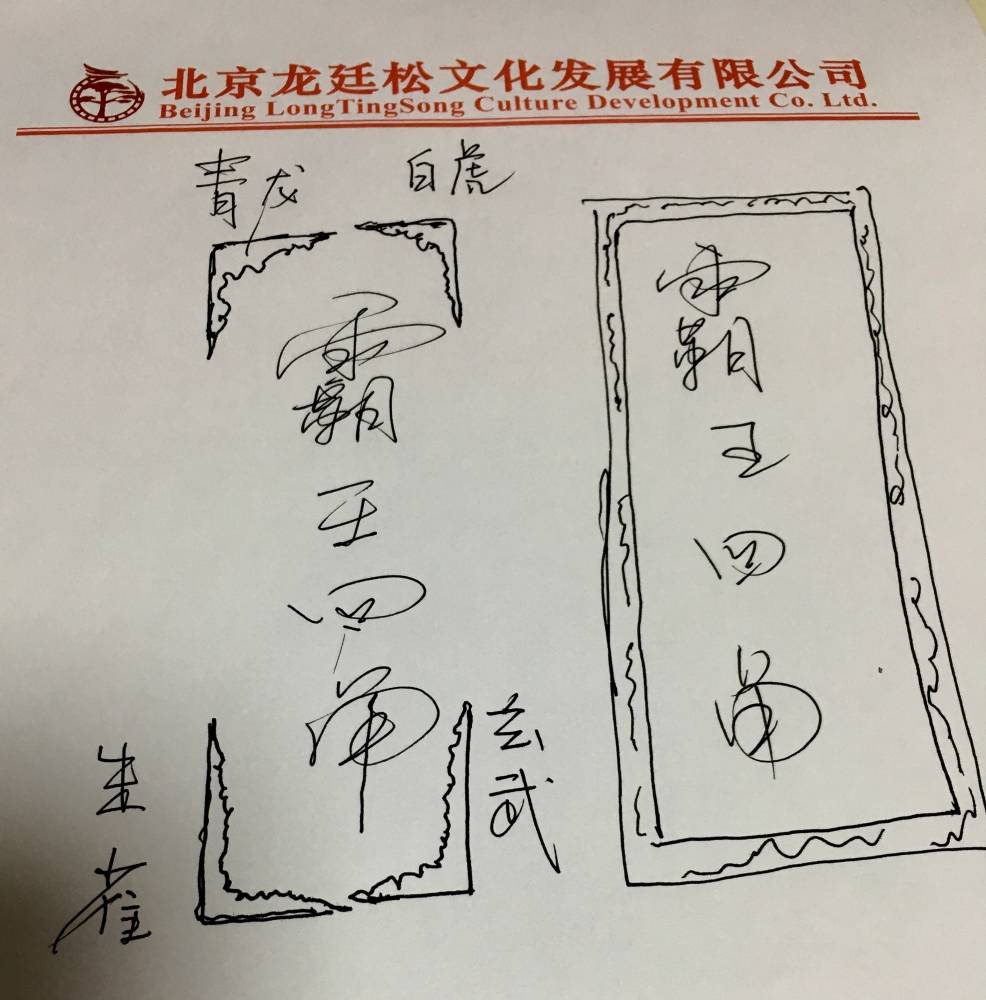 北京龙廷松文化发展有限公司
Beijing LongTingSong Culture Development Co. Ltd.
青龙
白虎
霸王四角
朱雀
玄武
霸王四角